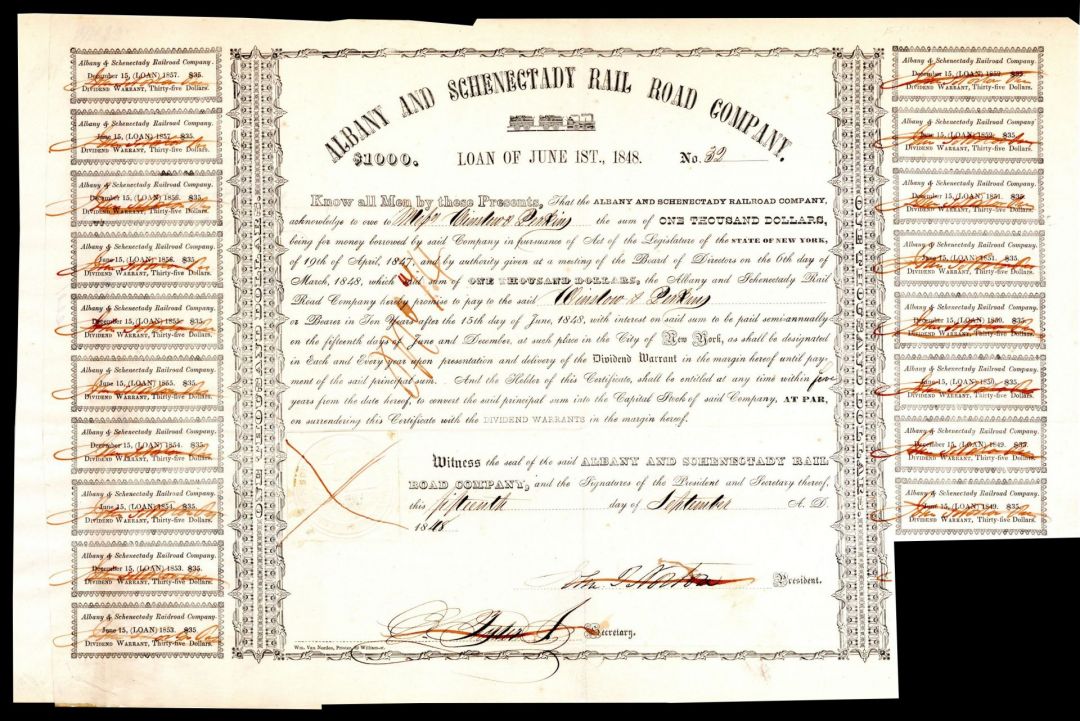 ALBANY AND SCHENECTADY RAIL ROAD COMPANY.
$1000. LOAN OF JUNE 1ST., 1848. No. 32
Know all Men by these Presents, That the ALBANY AND SCHENECTADY RAILROAD COMPANY,
acknowledge to owe to Winslow & Perkins the sum of ONE THOUSAND DOLLARS,
being for money borrowed by said Company in pursuance of Act of the Legislature of the STATE OF NEW YORK,
of 19th of April, 1847, and by authority given at a meeting of the Board of Directors on the 6th day of
March, 1848, which said sum of ONE THOUSAND DOLLARS, the Albany and Schenectady Rail
Road Company hereby promise to pay to the said Winslow & Perkins
or Bearer in Ten Years after the 15th day of June, 1848, with interest on said sum to be paid semi-annually
on the fifteenth days of June and December, at such place in the City of New York, as shall be designated
in Each and Every year upon presentation and delivery of the Dividend Warrant in the margin hereof until pay-
ment of the said principal sum. And the Holder of this Certificate, shall be entitled at any time within
years from the date hereof, to convert the said principal sum into the Capital Stock of said Company, AT PAR,
on surrendering this Certificate with the DIVIDEND WARRANTS in the margin hereof.
Witness the seal of the said ALBANY AND SCHENECTADY RAIL
ROAD COMPANY, and the Signatures of the President and Secretary thereof,
this fifteenth day of September A. D.
1848
President.
Secretary.
Wm. Van Norden, Printer, William-st.
Albany & Schenectady Railroad Company.
December 15, (LOAN) 1857. $35.
DIVIDEND WARRANT, Thirty-five Dollars.
Albany & Schenectady Railroad Company.
June 15, (LOAN) 1857. $35.
DIVIDEND WARRANT, Thirty-five Dollars.
Albany & Schenectady Railroad Company.
December 15, (LOAN) 1856. $35.
DIVIDEND WARRANT, Thirty-five Dollars.
Albany & Schenectady Railroad Company.
June 15, (LOAN) 1856. $35.
DIVIDEND WARRANT, Thirty-five Dollars.
Albany & Schenectady Railroad Company.
December 15, (LOAN) $35.
DIVIDEND WARRANT, Thirty-five Dollars.
Albany & Schenectady Railroad Company.
June 15, (LOAN) $35.
DIVIDEND WARRANT, Thirty-five Dollars.
Albany & Schenectady Railroad Company.
December 15, (LOAN) 1854. $35.
DIVIDEND WARRANT, Thirty-five Dollars.
Albany & Schenectady Railroad Company.
June 15, (LOAN) 1854. $35.
DIVIDEND WARRANT, Thirty-five Dollars.
Albany & Schenectady Railroad Company.
December 15, (LOAN) 1853. $35.
DIVIDEND WARRANT, Thirty-five Dollars.
Albany & Schenectady Railroad Company.
June 15, (LOAN) 1853. $35
DIVIDEND WARRANT, Thirty-five Dollars.
Albany & Schenectady Railroad Company.
December 15, (LOAN) 1852. $35
DIVIDEND WARRANT, Thirty-five Dollars.
Albany & Schenectady Railroad Company.
June 15, (LOAN) 1852. $35.
DIVIDEND WARRANT, Thirty-five Dollars.
Albany & Schenectady Railroad Company.
December 15, (LOAN) 1851. $35.
DIVIDEND WARRANT, Thirty-five Dollars.
Albany & Schenectady Railroad Company.
June 15, (LOAN) 1851. $35.
DIVIDEND WARRANT, Thirty-five Dollars.
Albany & Schenectady Railroad Company.
December 15, (LOAN) 1850. $35.
DIVIDEND WARRANT, Thirty-five Dollars.
Albany & Schenectady Railroad Company.
June 15, (LOAN) 1850. $35.
DIVIDEND WARRANT, Thirty-five Dollars.
Albany & Schenectady Railroad Company.
December 15, (LOAN) 1849. $35.
DIVIDEND WARRANT, Thirty-five Dollars.
Albany & Schenectady Railroad Company.
June 15, (LOAN) 1849. $35.
DIVIDEND WARRANT, Thirty-five Dollars.